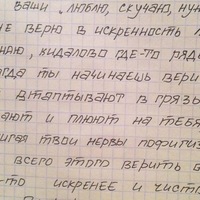 ваши „люблю, скучаю, нуж
не верю в искренность л
наю, кидалово где-то рядо
огда ты начинаешь вери
втаптывают в грязь
ают и плюют на тебя
игая твои нервы пофигиз
всего этого верить в
-то искренее и чист